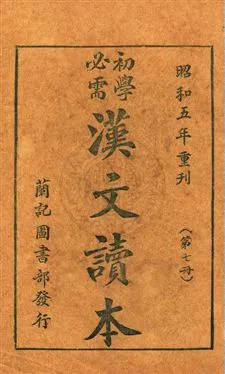 昭和五年重刊
（第七冊）
初學
必需
漢文讀本
蘭記圖書部發行